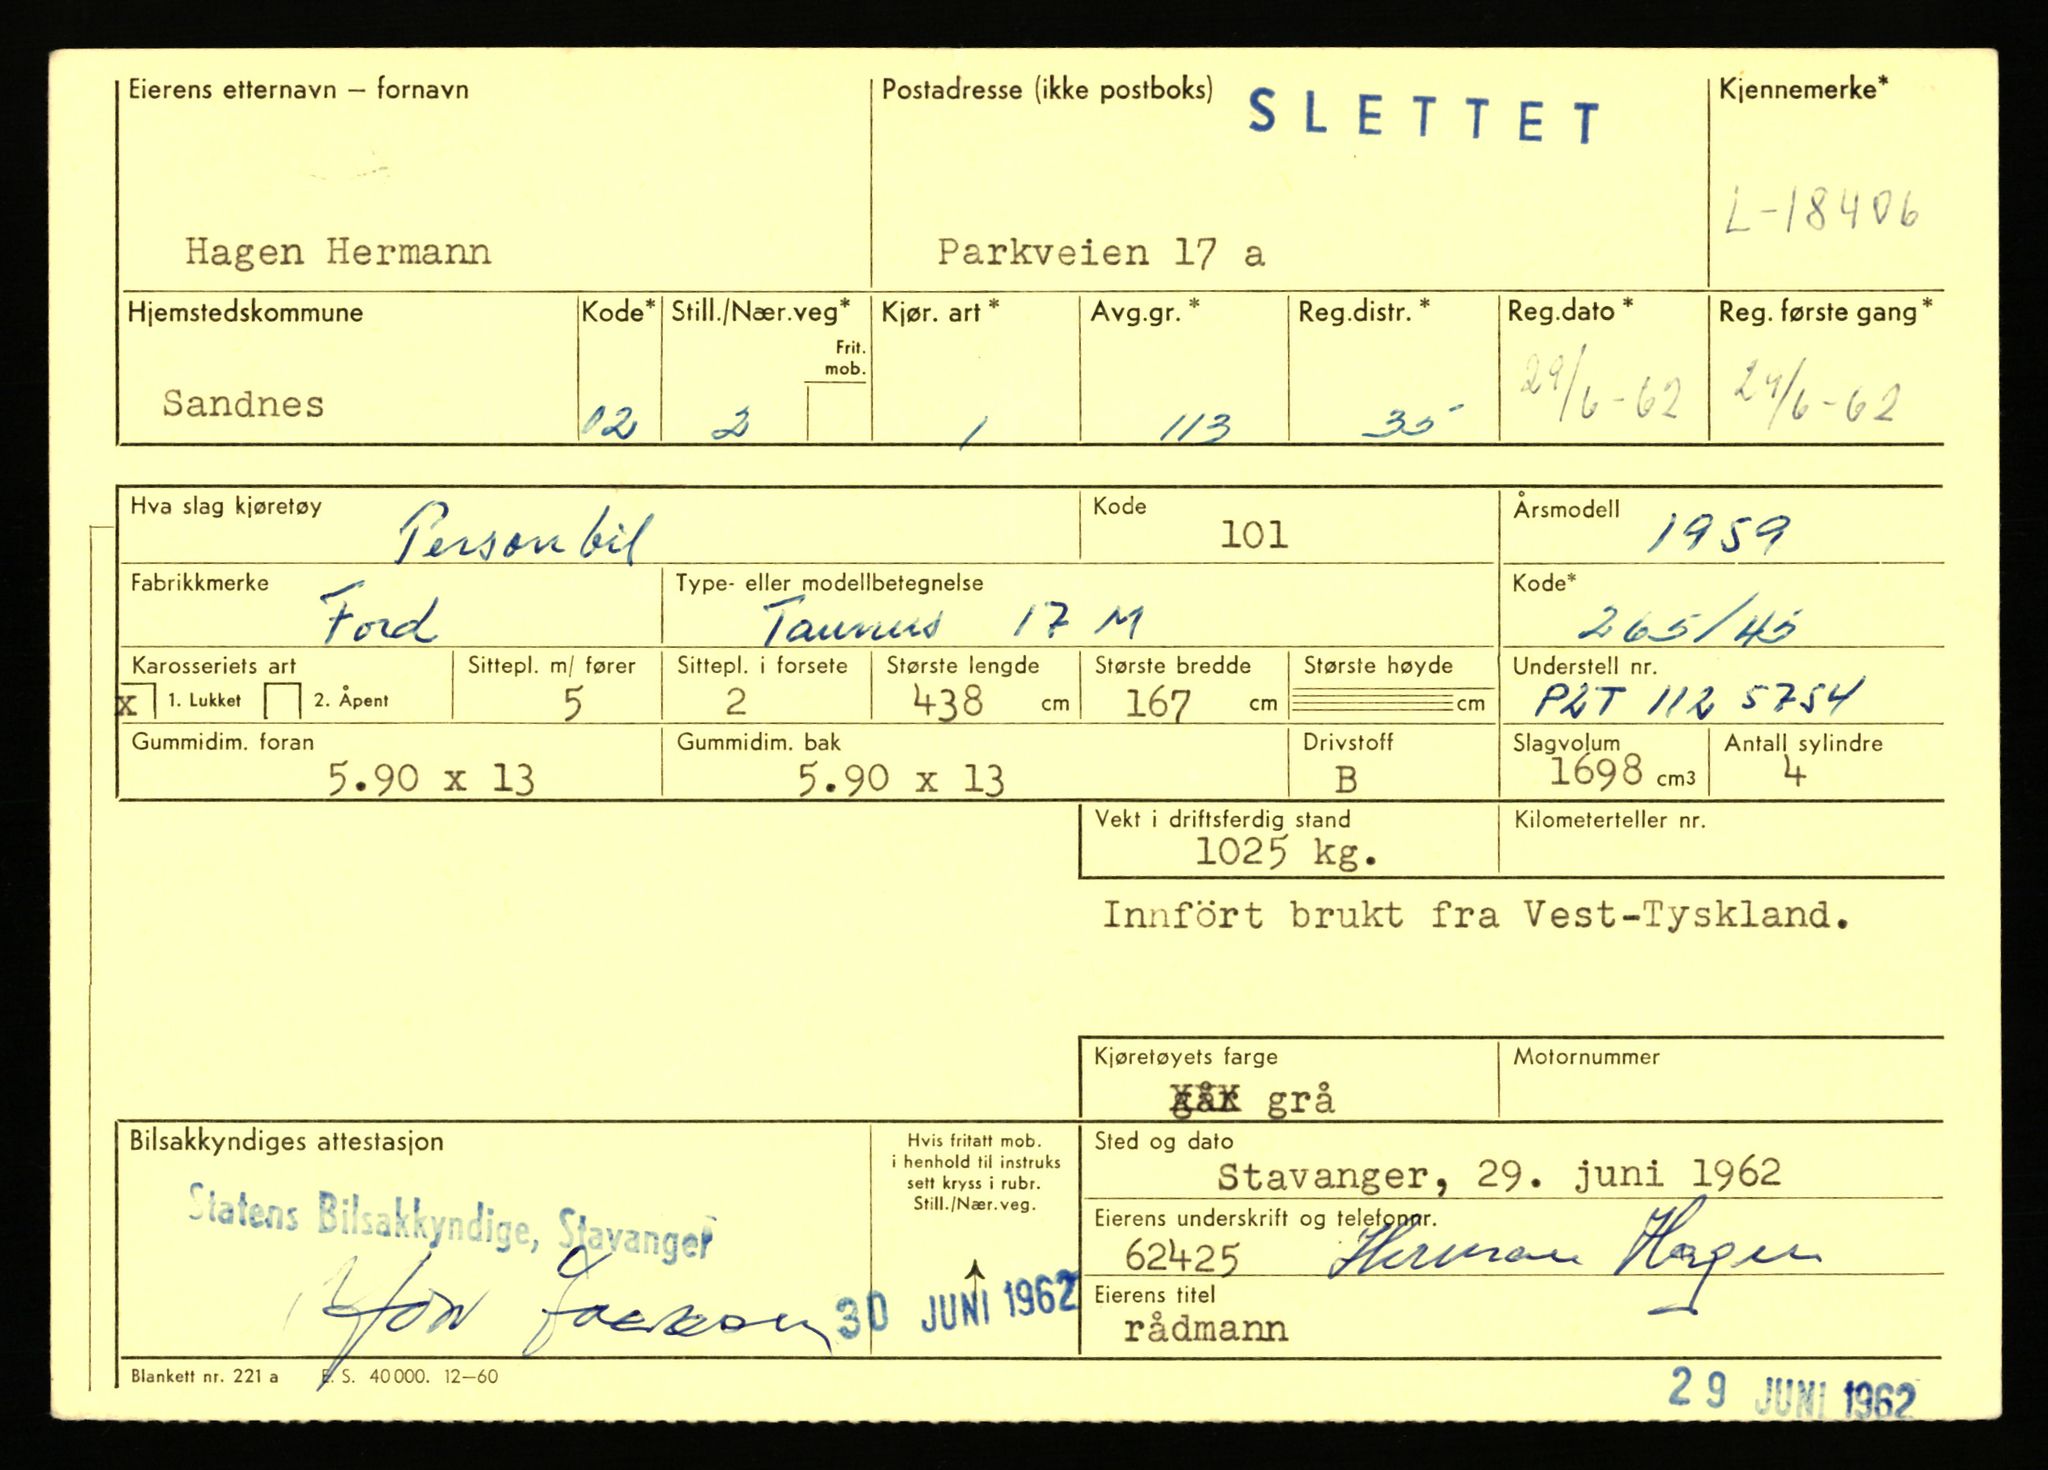 Eierens etternavn – fornavn
Postadresse (ikke postboks)
SLETTET
Kjennemerke*
L-18406
Hagen Hermann
Parkveien 17 a
Hjemstedskommune
Kode*
Still./Nær.veg*
Frit. mob.
Kjør. art*
Avg.gr.*
Reg.distr.*
Reg.dato*
Reg. første gang*
Sandnes
02
2
1
113
35
29/6-62
29/6-62
Hva slag kjøretøy
Personbil
Kode
101
Årsmodell
1959
Fabrikkmerke
Ford
Type- eller modellbetegnelse
Taunus 17 M
Kode*
265/45
Karosseriets art
x 1. Lukket 2. Åpent
Sittepl. m/ fører
5
Sittepl. i forsete
2
Største lengde
438 cm
Største bredde
167 cm
Største høyde
cm
Understell nr.
P2T 112 5754
Gummidim. foran
5.90 x 13
Gummidim. bak
5.90 x 13
Drivstoff
B
Slagvolum
1698 cm3
Antall sylindre
4
Vekt i driftsferdig stand
1025 kg.
Kilometerteller nr.
Innfört brukt fra Vest-Tyskland.
Kjøretøyets farge
grå
Motornummer
Bilsakkyndiges attestasjon
Statens Bilsakkyndige, Stavanger
30 JUNI 1962
Hvis fritatt mob.
i henhold til instruks
sett kryss i rubr.
Still./Nær.veg.
Sted og dato
Stavanger, 29. juni 1962
Eierens underskrift og telefonnr.
62425 Herman Hagen
Eierens titel
rådmann
Blankett nr. 221 a E. S. 40 000. 12–60
29 JUNI 1962